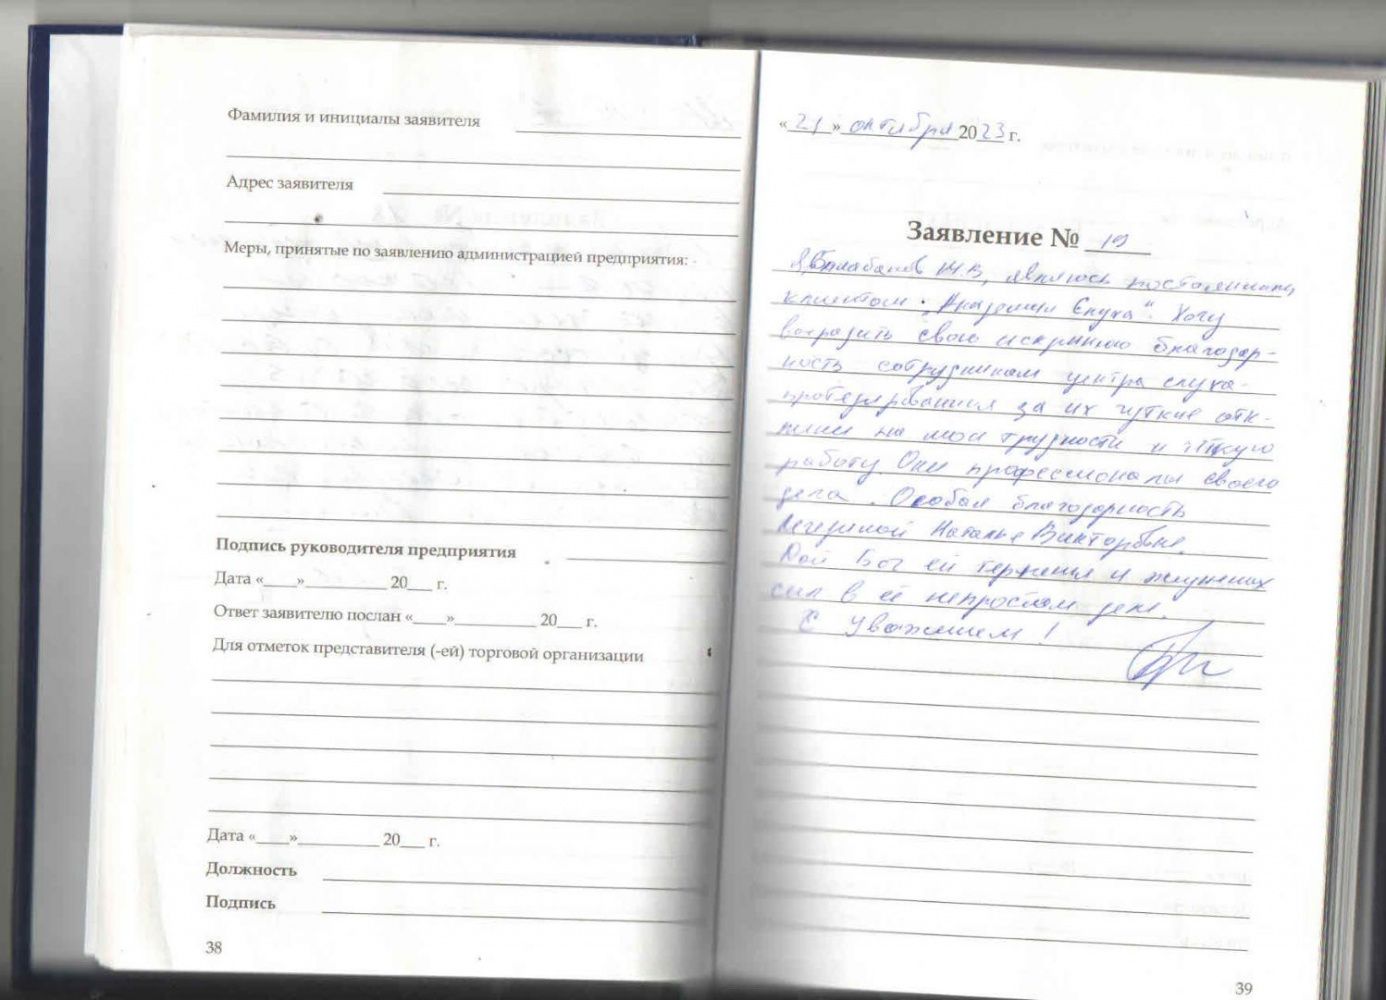 Фамилия и инициалы заявителя
Адрес заявителя
Меры, принятые по заявлению администрацией предприятия:
Подпись руководителя предприятия
Дата «____»__________ 20___ г.
Ответ заявителю послан «____»__________ 20___ г.
Для отметок представителя (-ей) торговой организации
Дата «____»__________ 20___ г.
Должность
Подпись
38
«21» октября 2023 г.
Заявление № 19
Я, Балабанов М.В, являюсь постоянным
клиентом "Академия Слуха". Хочу
выразить свою искреннюю благодар-
ность сотрудникам центра слухо-
протезирования за их чуткие отк-
лики на мои трудности и чёткую
работу. Они профессионалы своего
дела. Особая благодарность
Наталье Викторовне.
Дай Бог ей терпения и жизненных
сил в её непростом деле.
С уважением!
39